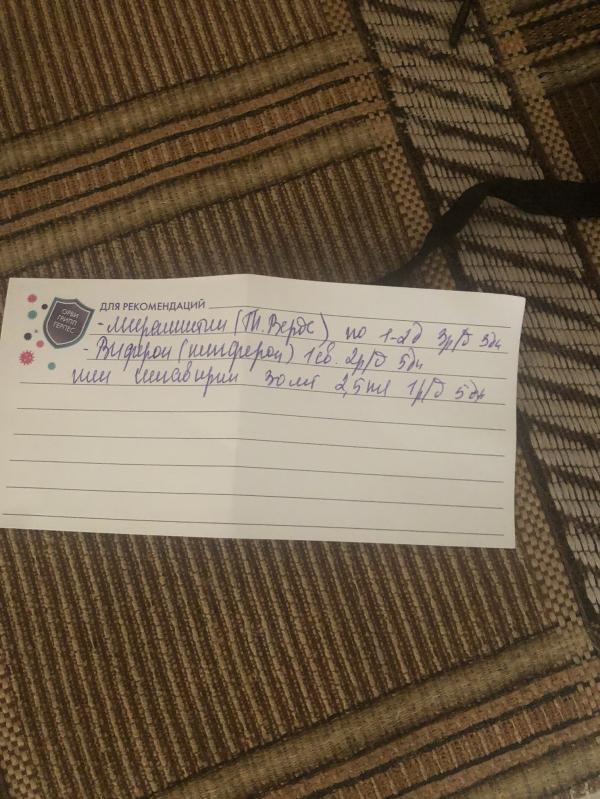 ОРВИ
ГРИПП
ГЕРПЕС
ДЛЯ РЕКОМЕНДАЦИЙ
- Мирамистин (Т. Верде) по 1-2д 3р/д 5дн
- Виферон (кипферон) 1 св. 2р/д 5дн
или ингавирин 30мг 2,5мл 1р/д 5дн